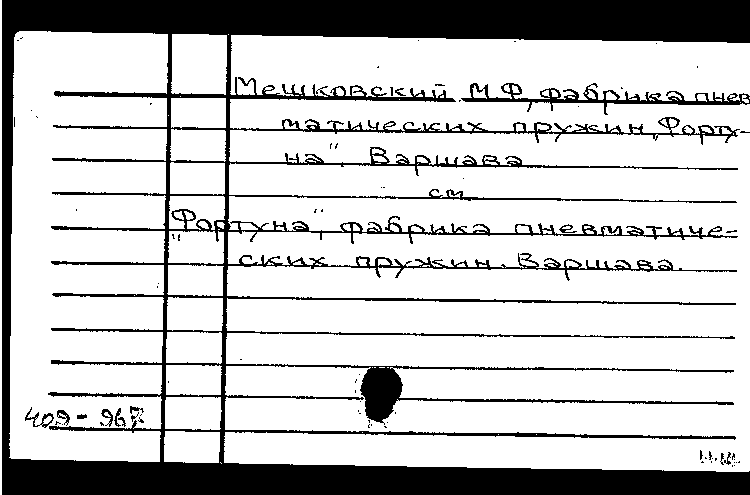 Мешковский М.Ф, фабрика пнев
матических пружин „Форту-
на". Варшава
см
„Фортуна", фабрика пневматиче-
ских пружин. Варшава.
409-967